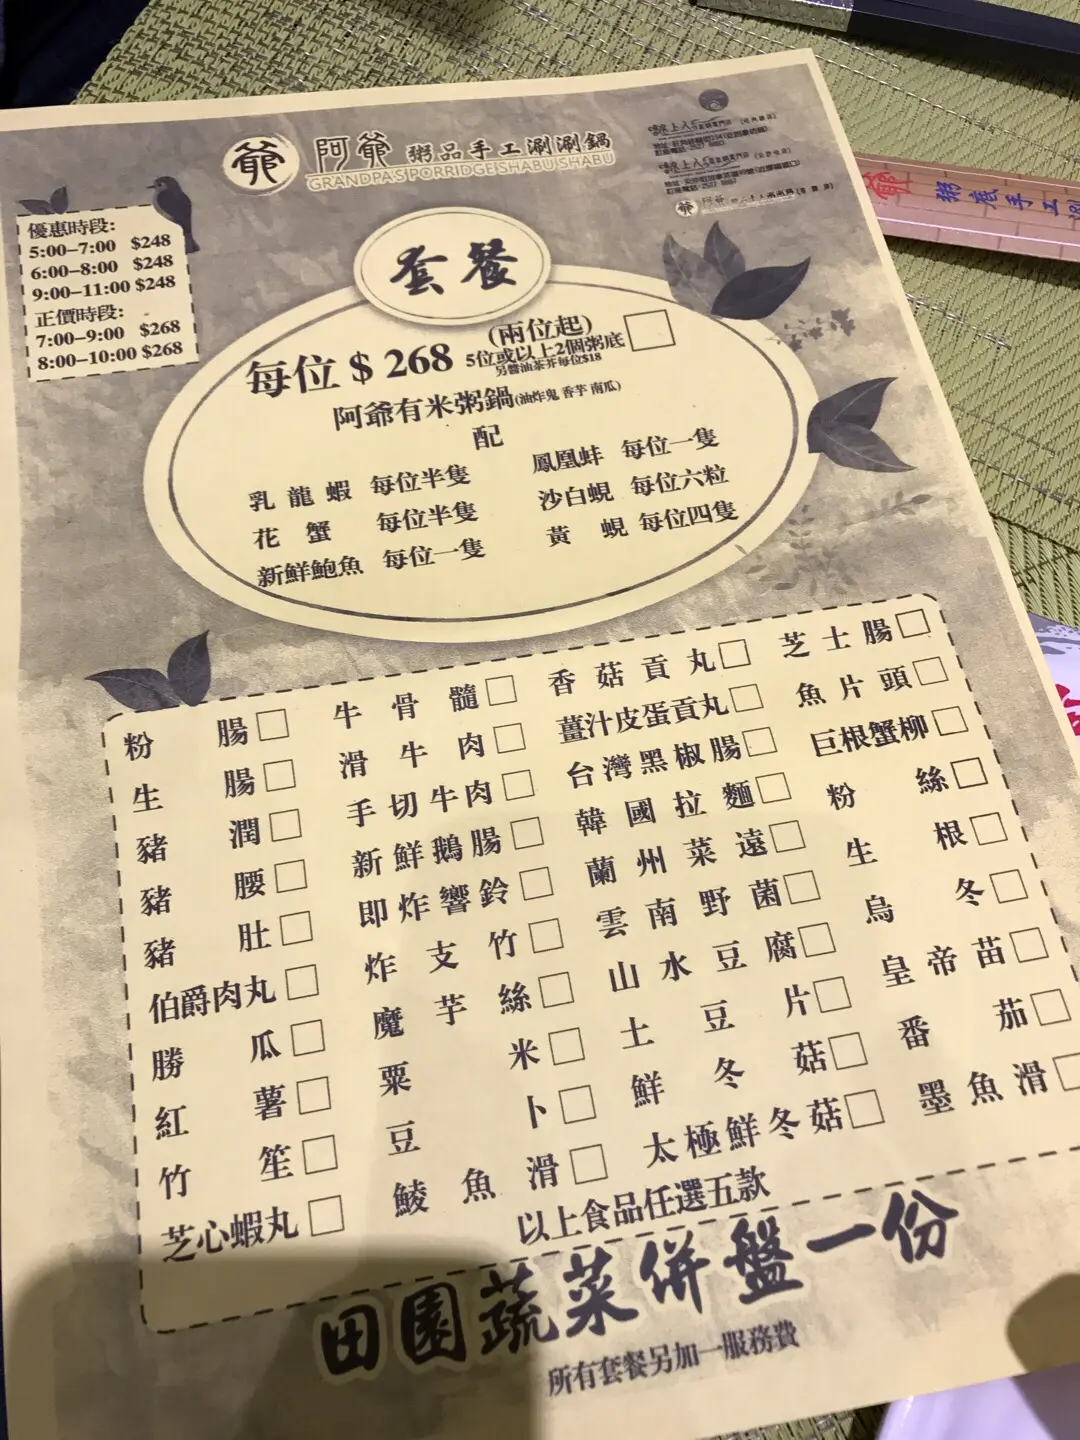 爺 阿爺 粥品手工涮涮鍋
GRANDPA'S PORRIDGE SHABU SHABU
優惠時段:
5:00–7:00 $248
6:00–8:00 $248
9:00–11:00 $248
正價時段:
7:00–9:00 $268
8:00–10:00 $268
粥底手工涮
套餐
每位 $ 268 (兩位起)
5位或以上2個粥底
另醬油茶芥每位$18
阿爺有米粥鍋(油炸鬼 香芋 南瓜)
配
乳龍蝦 每位半隻
花蟹 每位半隻
新鮮鮑魚 每位一隻
鳳凰蚌 每位一隻
沙白蜆 每位六粒
黃蜆 每位四隻
粉腸
生腸
豬潤
豬腰
豬肚
伯爵肉丸
勝瓜
紅薯
竹笙
芝心蝦丸
牛骨髓
滑牛肉
手切牛肉
新鮮鵝腸
即炸響鈴
炸支竹
魔芋絲
粟米
豆卜
鯪魚滑
香菇貢丸
薑汁皮蛋貢丸
台灣黑椒腸
韓國拉麵
蘭州菜遠
雲南野菌
山水豆腐
土豆片
鮮冬菇
太極鮮冬菇
芝士腸
魚片頭
巨根蟹柳
粉絲
生根
烏冬
皇帝苗
番茄
墨魚滑
以上食品任選五款
田園蔬菜併盤一份
所有套餐另加一服務費